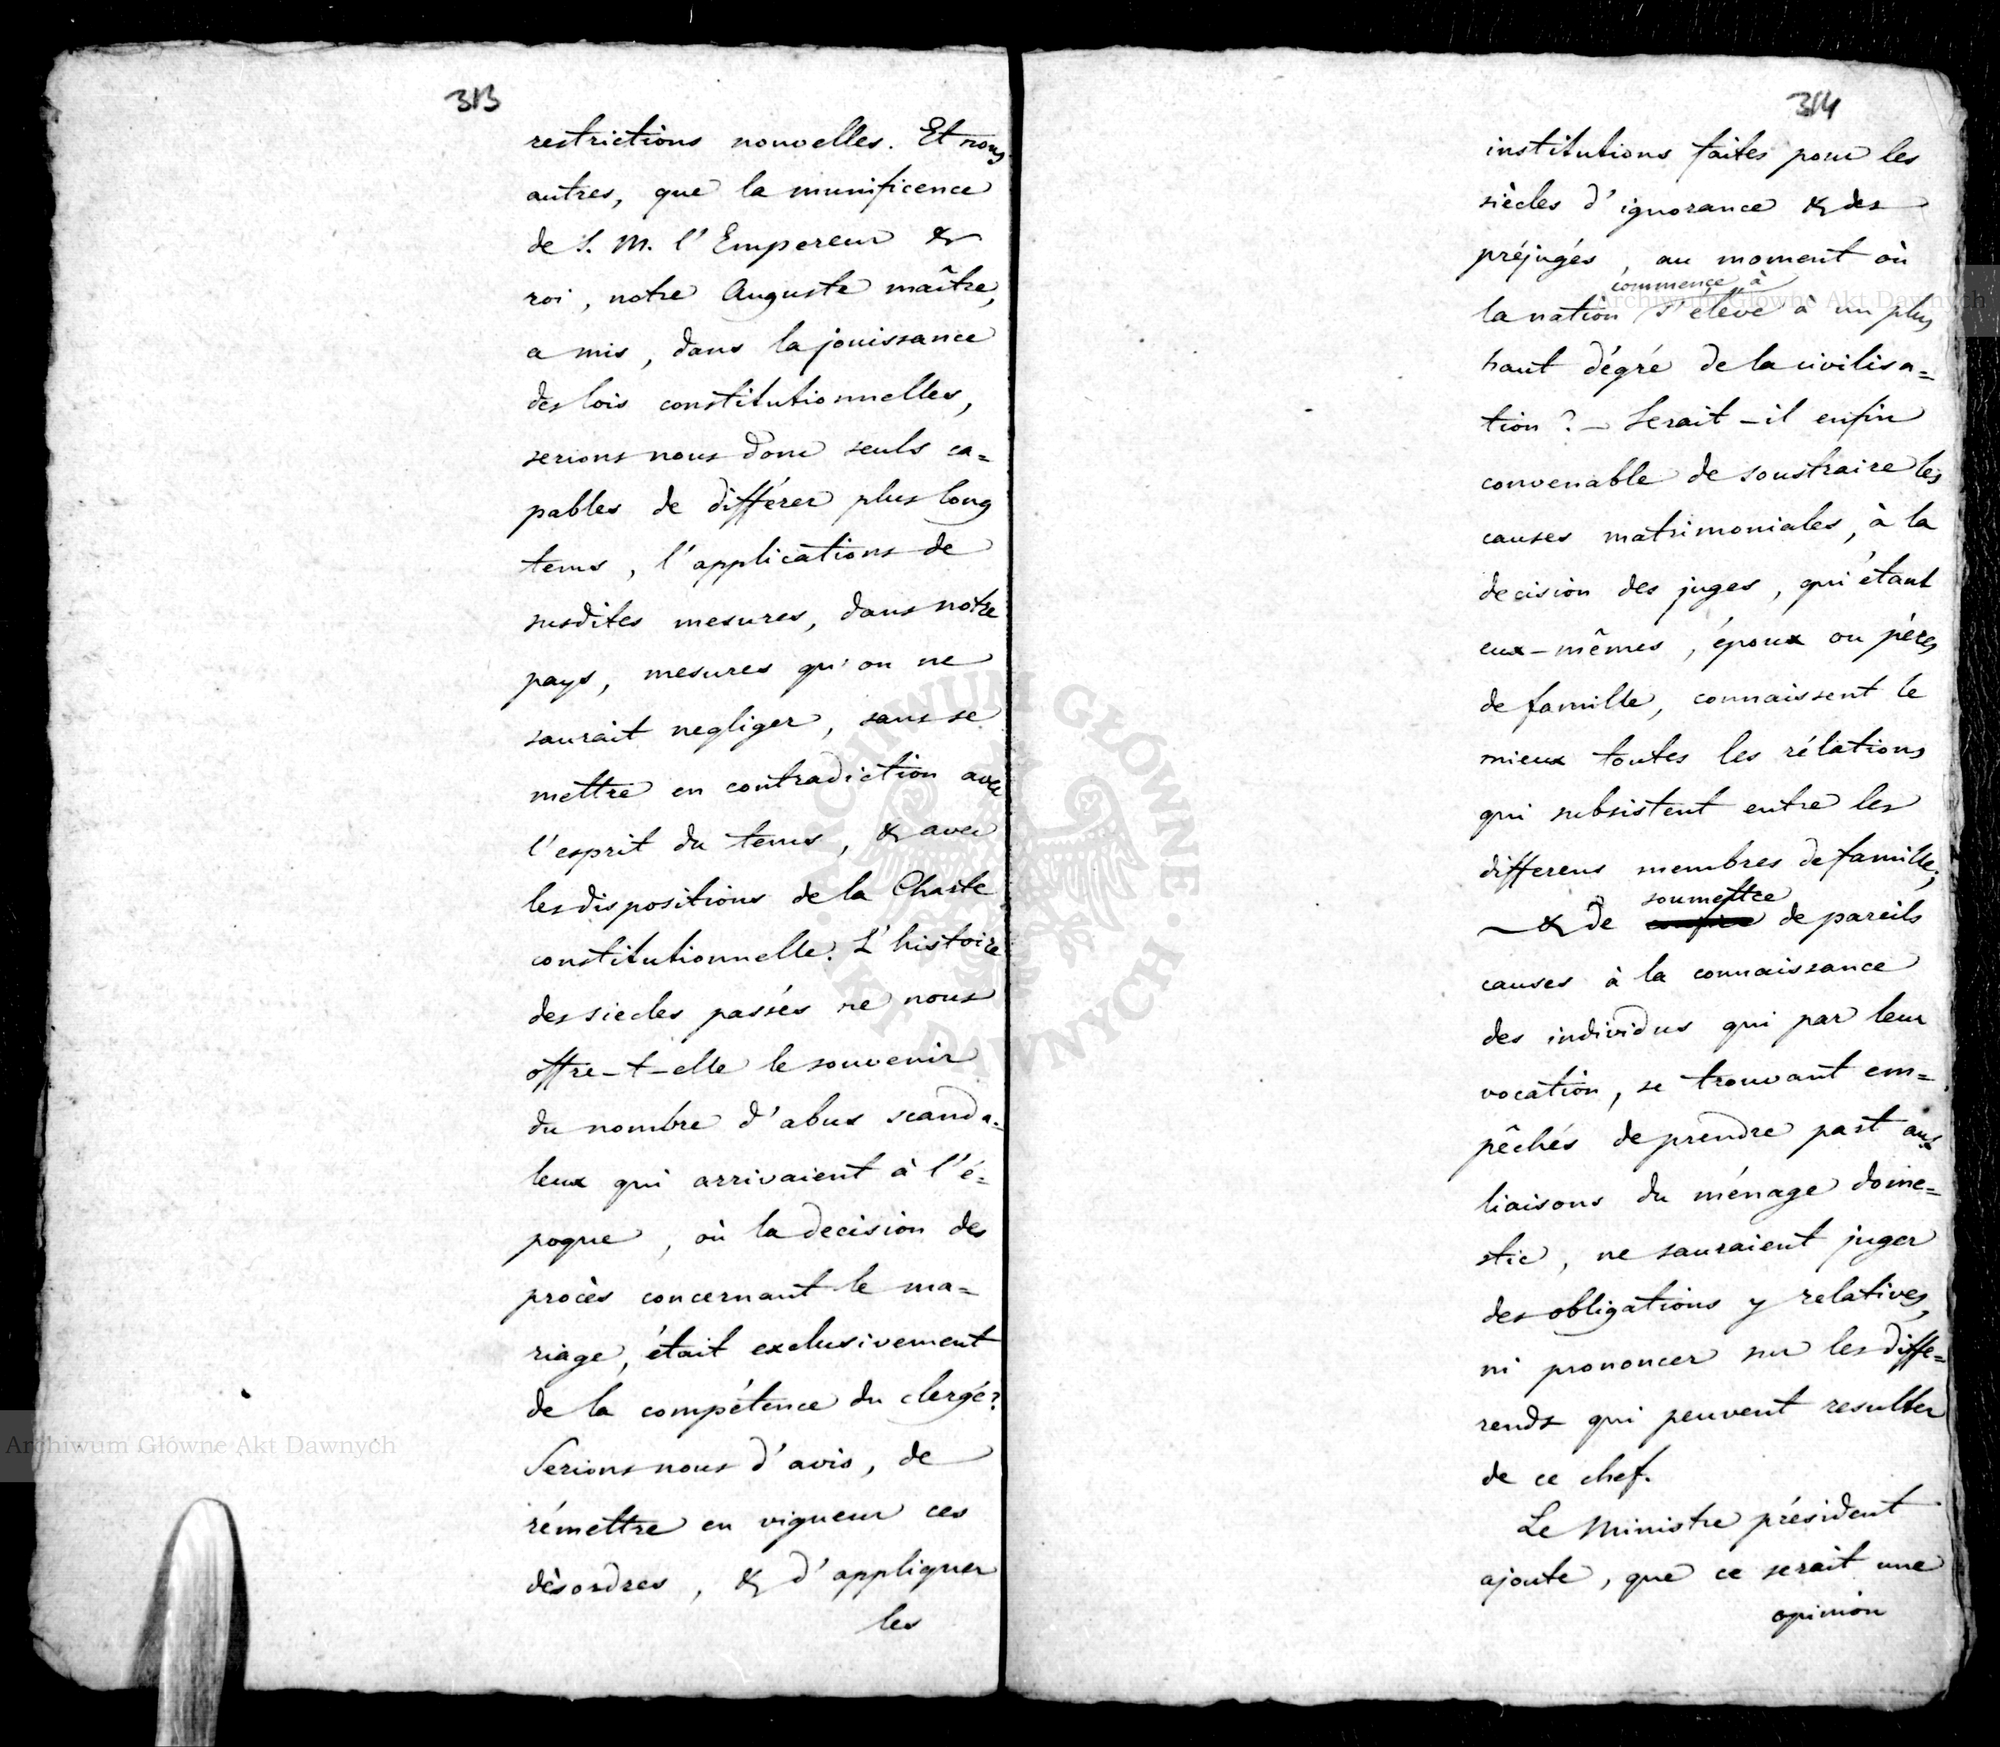 313
restrictions nouvelles. Et nous
autres, que la munificence
de S. M. l'Empereur &
roi, notre Auguste maître,
a mis, dans la jouissance
des lois constitutionnelles,
serions nous donc seuls ca=
pables de différer plus long
tems, l'applications de
susdites mesures, dans notre
pays, mesures qu'on ne
saurait negliger, sans se
mettre en contradiction avec
l'esprit du tems, & avec
les dispositions de la Charte
constitutionnelle. L'histoire
des siecles passés ne nous
offre-t-elle le souvenir
du nombre d'abus scanda=
leux qui arrivaient à l'é=
poque, où la decision des
procès concernant le ma=
riage, était exclusivement
de la compétence du clergé?
Serions nous d'avis, de
rémettre en vigueur ces
désordres, & d'appliquer
les
314
institutions faites pour les
siècles d'ignorance & des
préjugés, au moment où
commence à
la nation s'élève à un plus
haut dégré de la civilisa=
tion? – Serait-il enfin
convenable de soustraire les
causes matrimoniales, à la
decision des juges, qui étant
eux-mêmes, époux ou pères
de famille, connaissent le
mieux toutes les rélations
qui subsistent entre les
differens membres de famille;
soumettre
– & de de pareils
causes à la connaissance
des individus qui par leur
vocation, se trouvant em=
pêchés de prendre part aux
liaisons du ménage dome=
stic, ne sauraient juger
des obligations y relatives,
ni prononcer sur les diffe=
rends qui peuvent resulter
de ce chef.
Le Ministre président
ajoute, que ce serait une
opinion
Archiwum Główne Akt Dawnych
Archiwum Główne Akt Dawnych
ARCHIWUM GŁÓWNE · AKT DAWNYCH ·